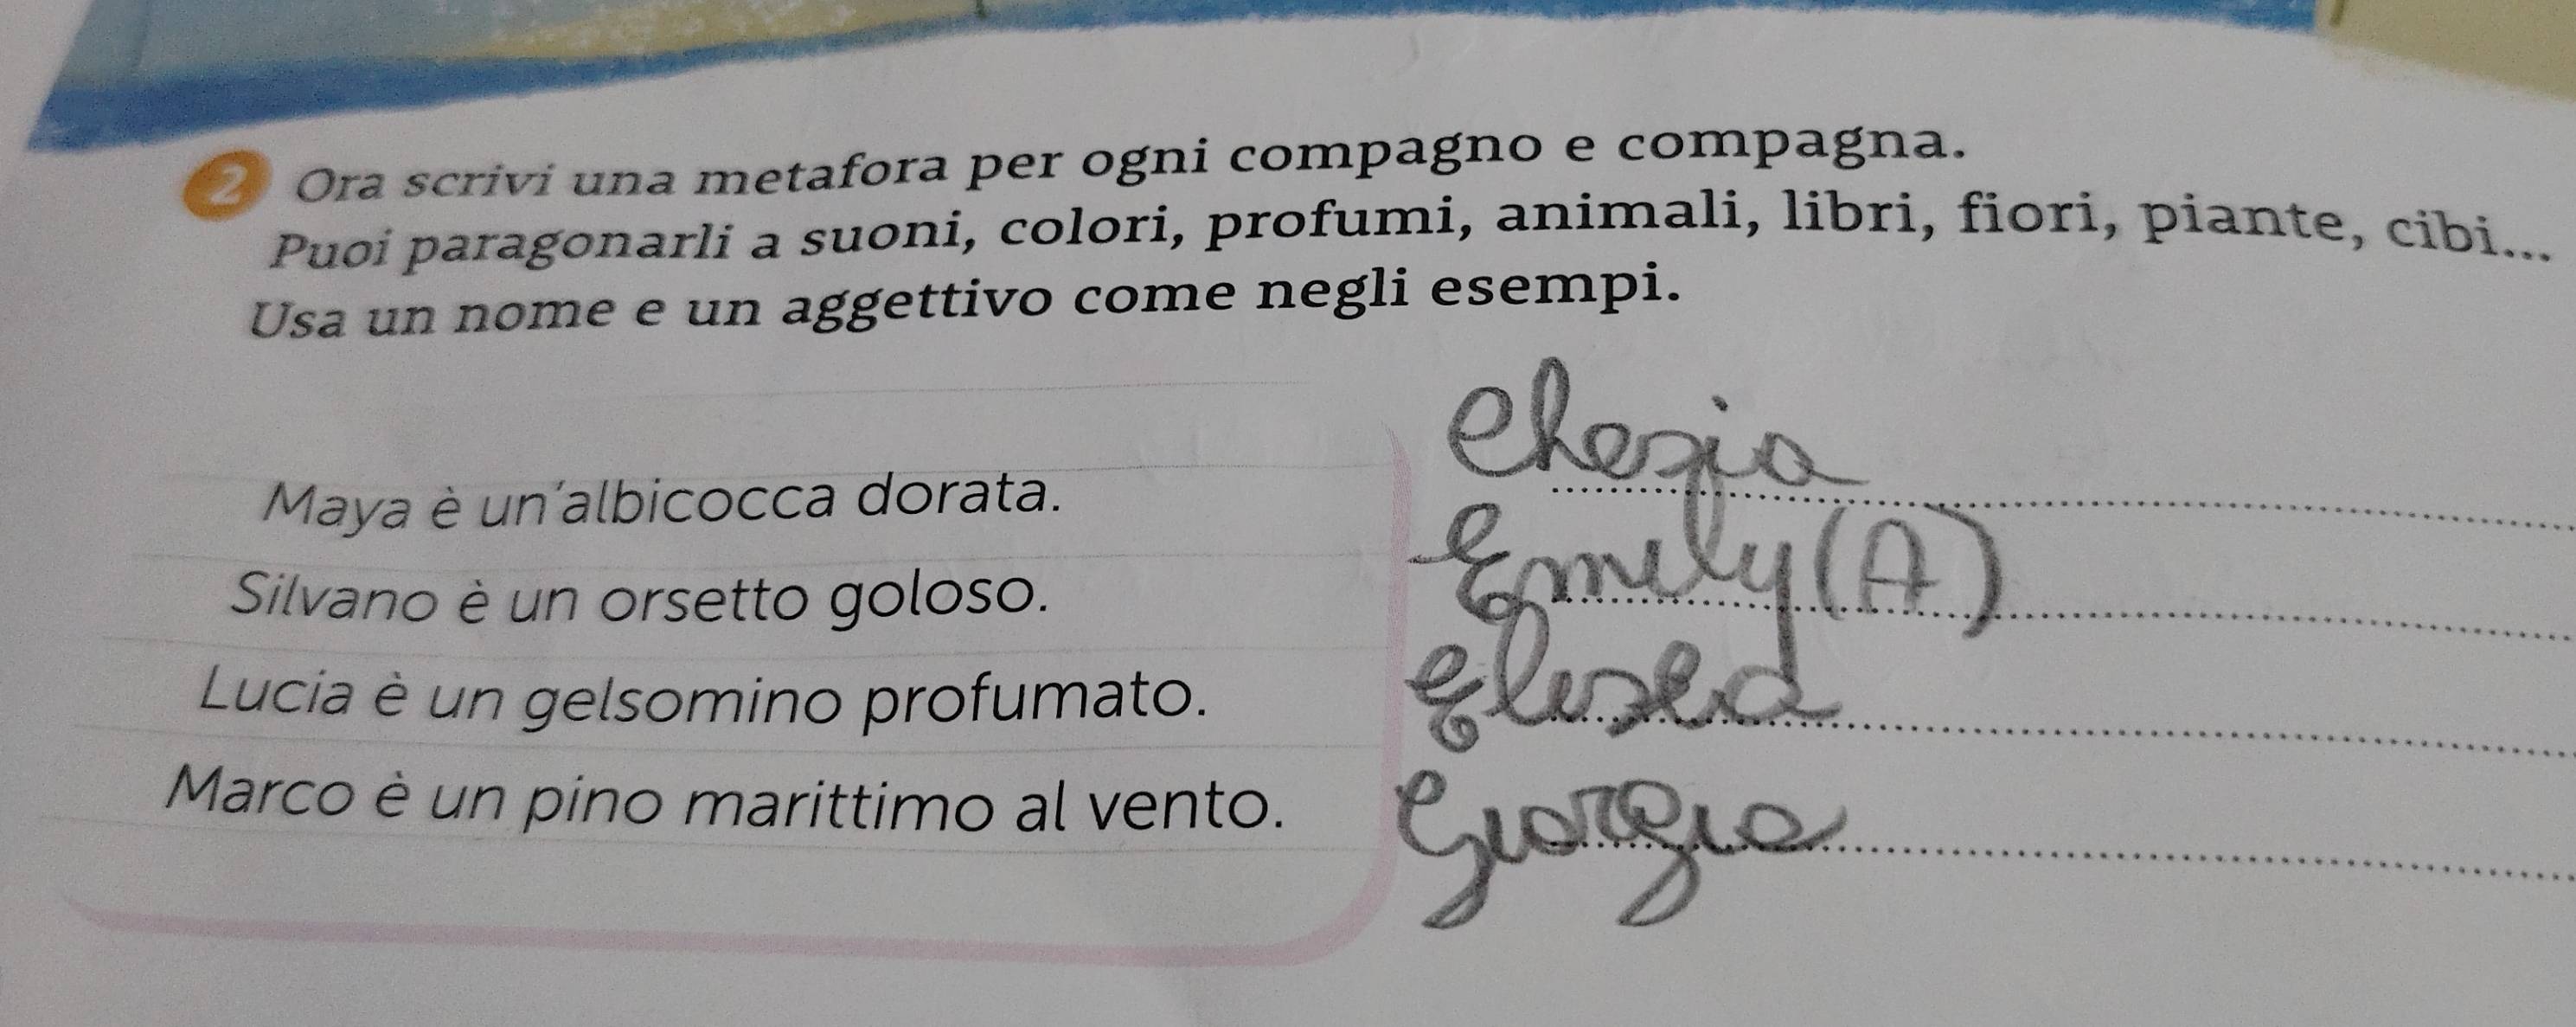 2 Ora scrivi una metafora per ogni compagno e compagna.
Puoi paragonarli a suoni, colori, profumi, animali, libri, fiori, piante, cibi...
Usa un nome e un aggettivo come negli esempi.
Maya è un'albicocca dorata.
Silvano è un orsetto goloso.
Lucia è un gelsomino profumato.
Marco è un pino marittimo al vento.
Emily (A)
Giorgia